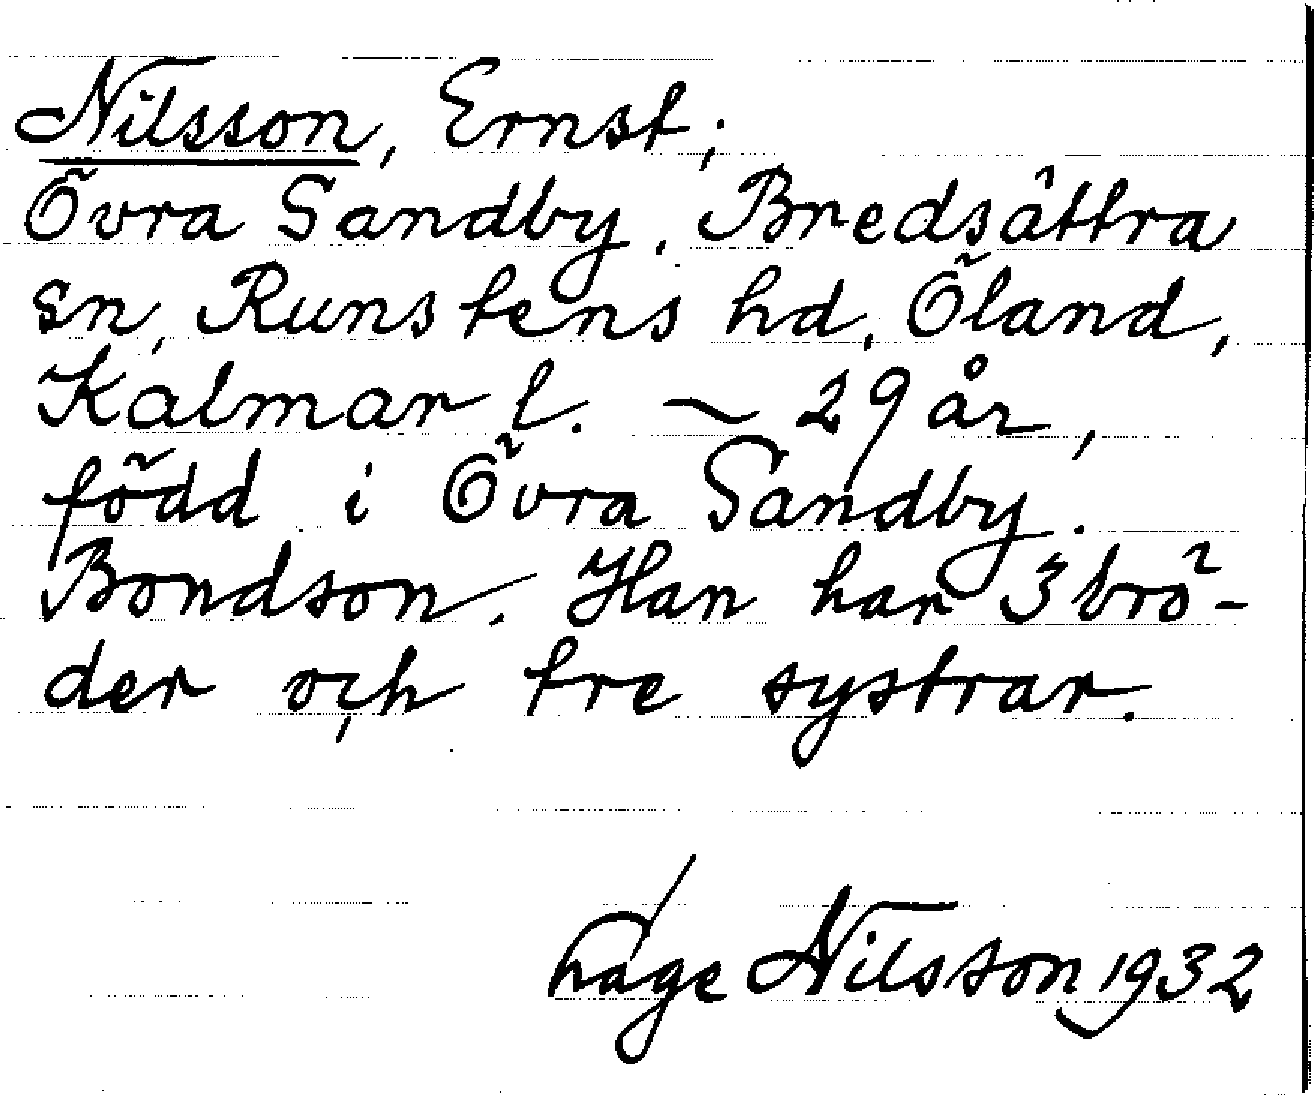 Nilsson, Ernst;
Övra Sandby, Bredsättra
sn, Runstens hd, Öland,
Kalmar l. — 29 år,
född i Övra Sandby.
Bondson. Han har 3 brö-
der och tre systrar.
Nilsson 1932